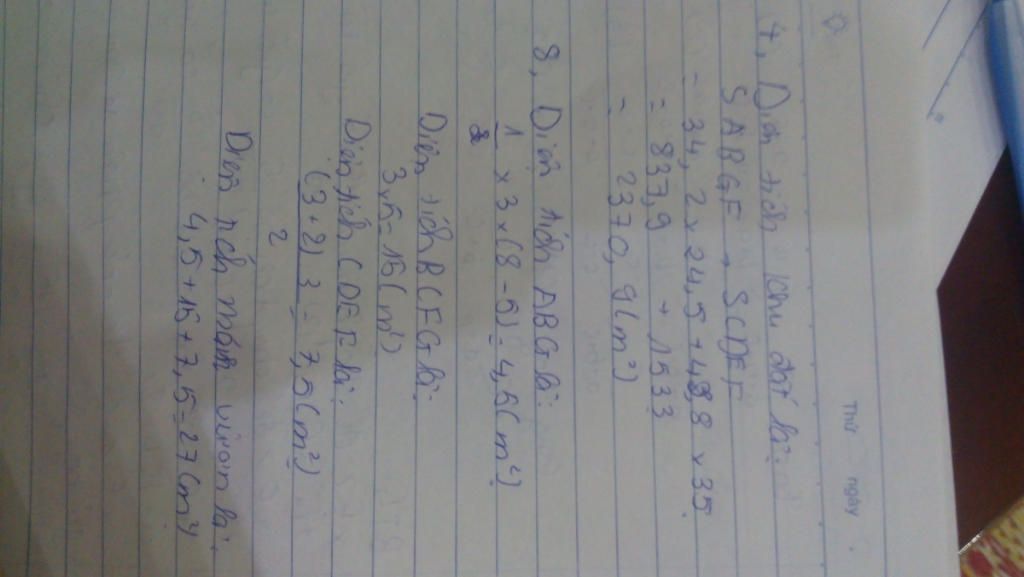 Thứ ngày
7, Diện tích khu đất là:
SABGF + SCDEF
= 34,2 x 24,5 + 43,8 x 35
= 837,9 + 1533
= 2370,9 (m²)
8, Diện tích ABG là:
1/2 x 3 x (8 - 5) = 4,5 (m²)
Diện tích BCEG là:
3 x 5 = 15 (m²)
Diện tích CDEF là:
(3 + 2) 3 / 2 = 7,5 (m²)
Diện tích mảnh vườn là:
4,5 + 15 + 7,5 = 27 (m²)